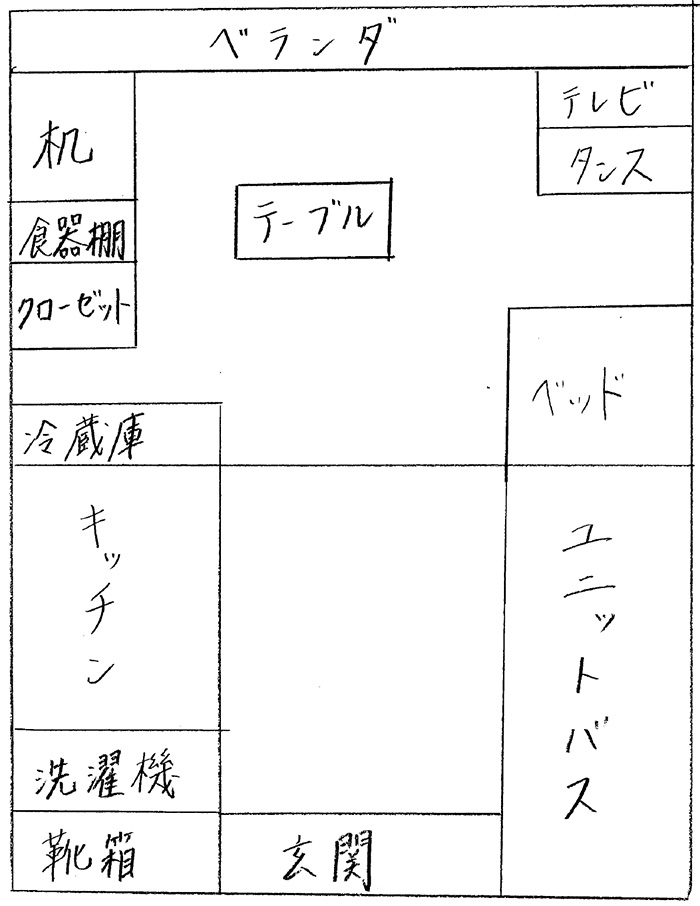 ベランダ
机
テレビ
タンス
食器棚
テーブル
クローゼット
ベッド
冷蔵庫
キッチン
ユニットバス
洗濯機
靴箱
玄関